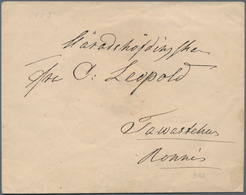 Häradshöfdingskan
fru C: Leopold
Tawastehus
Rönnäs